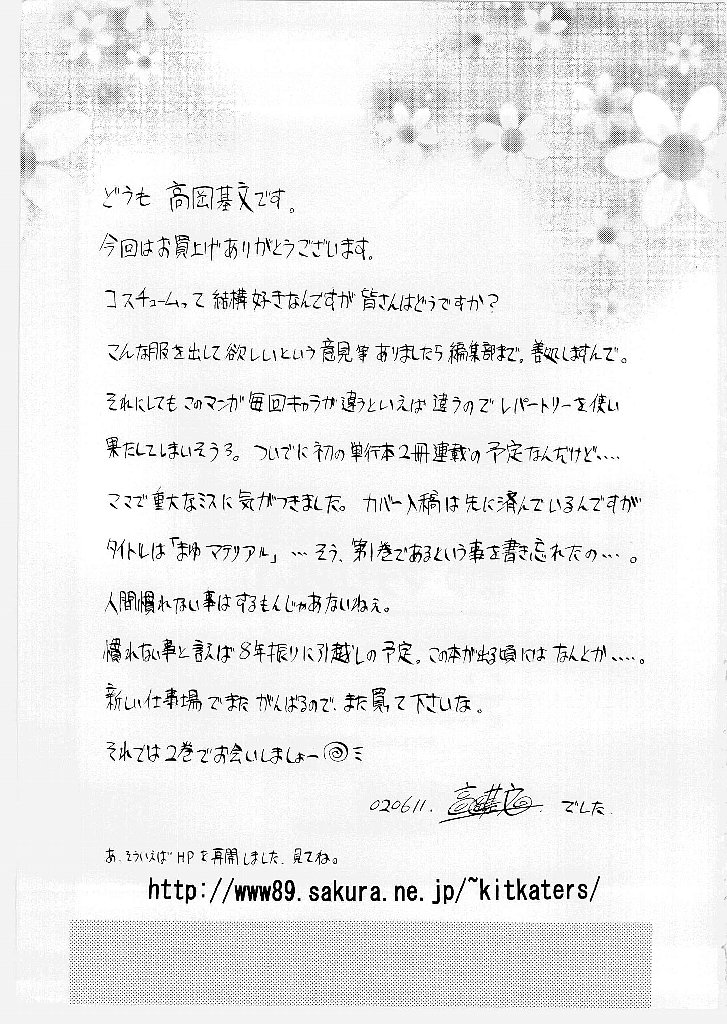 どうも 高岡基文です。
今回はお買上げありがとうございます。
コスチュームって 結構好きなんですが 皆さんはどうですか?
こんな服を出して欲しいという意見等ありましたら編集部まで。善処しますんで。
それにしてもこのマンガ毎回キャラが違うといえば 違うのでレパートリーを使い
果たしてしまいそうろ。ついでに初の単行本2冊連載の予定なんだけど‥‥
ママで重大なミスに気がつきました。カバー入稿は先に済んでいるんですが
タイトルは「まゆマテリアル」…そう、第1巻であるという事を書き忘れたの…。
人間慣れない事はするもんじゃあないねぇ。
慣れない事と言えば8年振りに引越しの予定。この本が出る頃には なんとか‥‥。
新しい仕事場でまた がんばるので、また買って下さいな。
それでは2巻でお会いしましょー
020611. 高岡基文 でした.
あ、そういえばHPを再開しました、見てね。
http://www89.sakura.ne.jp/~kitkaters/